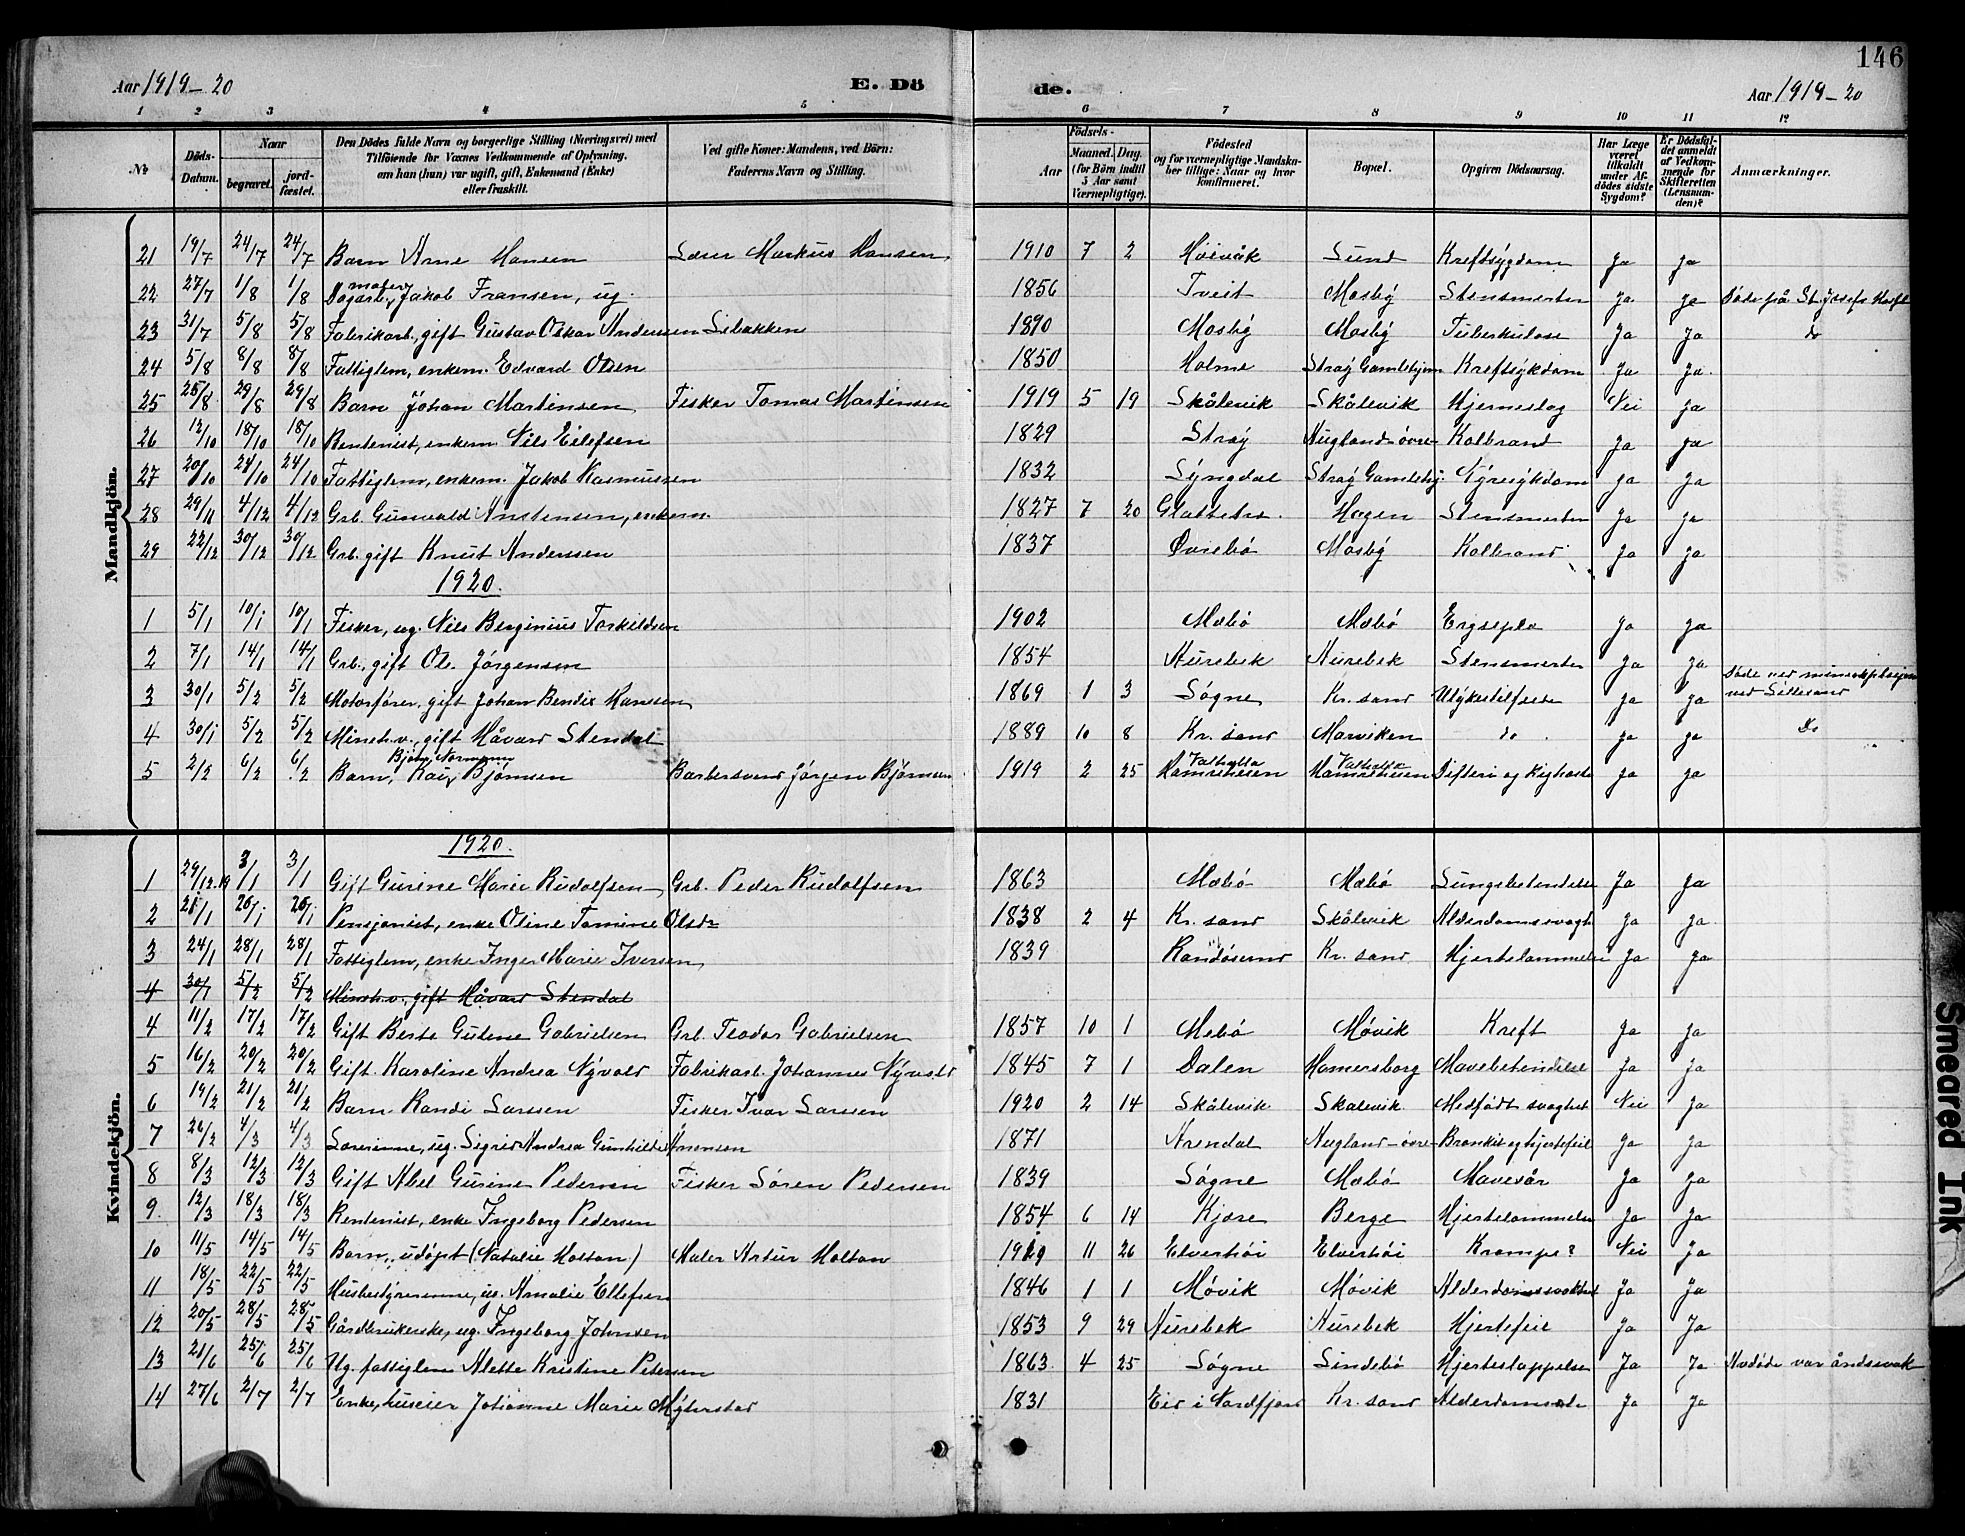 146
Aar 1919-20 E. Dö de. Aar 1919-20
1 2 3 4 5 6 7 8 9 10 11 12
No Döds-Datum. Naar begravet. jordfæstet. Den Dödes fulde Navn og borgerlige Stilling (Næringsvei) med Tilföiende for Voxnes Vedkommende af Oplysning, om han (hun) var ugift, gift, Enkemand (Enke) eller fraskilt. Ved gifte Koner: Mandens, ved Börn: Faderens Navn og Stilling. Födsels- Aar Maaned. Dag. (for Börn indtil 5 Aar samt Værnepligtige). Födested og for værnepligtige Mandskaber tillige: Naar og hvor konfirmeret. Bopæl. Opgiven Dödsaarsag. Har Læge været tilkaldt under Afdödes sidste Sygdom? Er Dödsfaldet anmeldt af Vedkommende for Skifteretten (Lensmanden)? Anmærkninger.
Mandkjön.
21 19/7 24/7 24/7 Barn Arne Hansen Lærer Markus Hansen 1910 7 2 Høivåk Lund Kreftsygdom Ja Ja
22 27/7 1/8 1/8 Dagarb. Jakob Fransen, ug. 1856 Tveit Mosby Stensmerter Ja Ja Døde på St. Josefs Hospl
23 31/7 5/8 5/8 Fabrikarb., gift Gustav Oskar Andersen Libakken 1890 Mosby Mosby Tuberkulose Ja Ja Do
24 5/8 8/8 8/8 Fattiglem, enkem. Edvard Olsen 1850 Holme Stray Gamlehjem Kreftsykdom Ja Ja
25 25/8 29/8 29/8 Barn Johan Martinsen Fisker Tomas Martinsen 1919 5 19 Skålevik Skålevik Hjerneslag Nei Ja
26 12/10 18/10 18/10 Rentenist, enkem Nils Eilefsen 1829 Stray Augland øvre Kolbrand Ja Ja
27 20/10 24/10 24/10 Fattiglem, enkem. Jakob Rasmussen 1832 Lyngdal Stray Gamlehj. Nyresykdom Ja Ja
28 29/11 4/12 4/12 Grb. Gunvald Anstensen, enkem. 1827 7 20 Glattetre. Hagen Stensmerter Ja Ja
29 22/12 30/12 30/12 Grb. gift Knut Anderssen 1837 Øvrebø Mosby Kolbrand Ja Ja
1920.
1 5/1 10/1 10/1 Fisker, ug. Nils Berginius Torkildsen 1902 Mæbø Mæbø Ja Ja
2 7/1 14/1 14/1 Grb., gift Ole Jørgensen 1854 Aurebek Aurebek Stensmerter Ja Ja
3 30/1 5/2 5/2 Motorfører, gift Johan Bendix Hanssen 1869 1 3 Søgne Kr. sand Ulykkestilfelde Ja Ja Døde ved mineeksplosjon ved Lillesand
4 30/1 5/2 5/2 Mineh.v., gift Håvard Stendal 1889 10 8 Kr. sand Marviken do. Ja Ja Do
5 2/2 6/2 6/2 Barn, Kai Bjørn Normann Bjørnsen Barbersvend Jørgen Bjørnsen 1919 2 25 Valhalla Hamreheien Valhalla Hamreheien Difteri og Kighoste Ja Ja
Kvindekjön.
1920.
1 29/12.19 3/1 3/1 Gift Gurine Marie Rudolfsen Grb. Peder Rudolfsen 1863 Mæbø Mæbø Lungebetendelse Ja Ja
2 21/1 26/1 26/1 Pensjonist, enke Oline Tomine Olsdr 1838 2 4 Kr. sand Skålevik Alderdomssvagh Ja Ja
3 24/1 28/1 28/1 Fattiglem, enke Inger Marie Iversen 1839 Randøsund Kr. sand Hjertelammelse Ja Ja
4 30/1 5/2 5/2 Mineh.v., gift Håvard Stendal
4 11/2 17/2 17/2 Gift Berte Gutene Gabrielsen Grb. Teodor Gabrielsen 1857 10 1 Mebø Møvik Kreft Ja Ja
5 16/2 20/2 20/2 Gift Karoline Andrea Nyvold Fabrikarb. Johannes Nyvold 1845 7 1 Dalen Hamersborg Mavebetendelse Ja Ja
6 19/2 21/2 21/2 Barn Randi Larssen Fisker Ivar Larssen 1920 2 14 Skålevik Skålevik Medfødt svaghet Nei Ja
7 26/2 4/3 4/3 Lærerinne, ug. Sigrid Andrea Gunhilde Ånonsen 1871 Arendal Augland øvre Bronkit og hjertefeil Ja Ja
8 8/3 12/3 12/3 Gift Abel Gurine Pedersen Fisker Søren Pedersen 1839 Søgne Mæbø Mavesår Ja Ja
9 12/3 18/3 18/3 Rentenist, enke Ingeborg Pedersen 1854 6 14 Kjære Berge Hjertelammelse Ja Ja
10 11/5 14/5 14/5 Barn, udøpt (Natalie Holtan) Maler Artur Holtan 1919 11 26 Elverhøi Elverhøi Krampe? Nei Ja
11 18/5 22/5 22/5 Husbestyrerinne, ug. Amalie Ellefsen 1846 1 1 Møvik Møvik Alderdomssvakhet Ja Ja
12 20/5 28/5 28/5 Gårdbrukerske, ug. Ingeborg Johnsen 1853 9 29 Aurebek Aurebek Hjertefeil Ja Ja
13 21/6 25/6 25/6 Ug. fattiglem Alette Kristine Petersen 1863 4 25 Søgne Lindebø Hjerteslappelse Ja Ja Avdøde var åndssvak
14 27/6 2/7 2/7 Enke, huseier Johanne Marie Myherstad 1831 Eid i Nordfjord Kr. sand Ja Ja
Smeared Ink